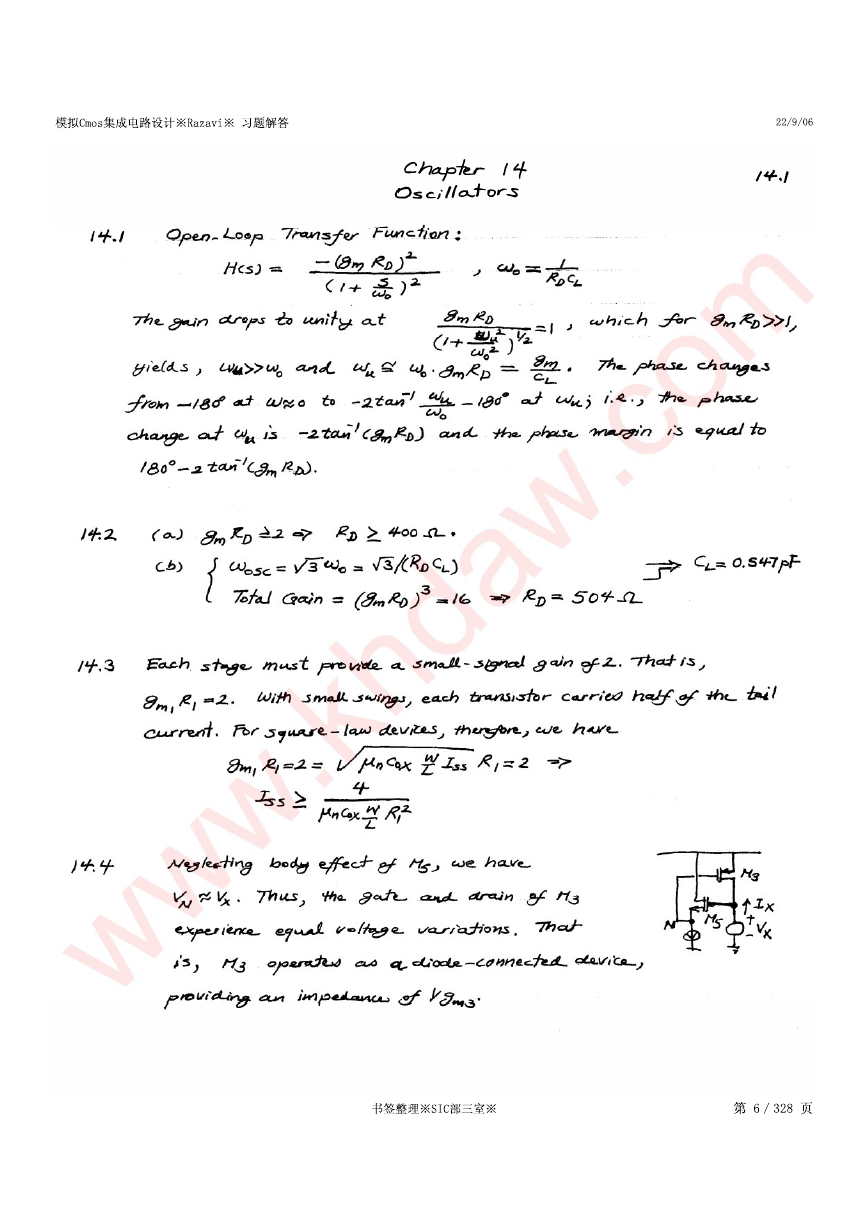 模拟Cmos集成电路设计※Razavi※ 习题解答
22/9/06
Chapter 14
14.1
Oscillators
14.1 Open-Loop Transfer Function :
H(s) = -(gm RD)² / (1 + s/ω0)² , ω0 = 1/(RD CL)
The gain drops to unity at gm RD / (1 + ωu²/ω0²)^1/2 = 1 , which for gm RD >> 1,
yields , ωu>>ω0 and ωu ≅ ω0 · gm RD = gm/CL . The phase changes
from -180° at ω≈0 to -2tan⁻¹ ωu/ω0 - 180° at ωu ; i.e., the phase
change at ωu is -2tan⁻¹(gm RD) and the phase margin is equal to
180° - 2 tan⁻¹(gm RD).
14.2 (a) gm RD ≥ 2 ⇒ RD ≥ 400 Ω .
(b) { ωosc = √3 ω0 = √3/(RD CL) ⇒ CL = 0.547 pF
Total Gain = (gm RD)³ = 16 ⇒ RD = 504 Ω
14.3 Each stage must provide a small-signal gain of 2. That is ,
gm1 R1 = 2. With small swings, each transistor carries half of the tail
current. For square-law devices, therefore, we have
gm1 R1 = 2 = √(μn Cox W/L ISS) R1 = 2 ⇒
ISS ≥ 4 / (μn Cox W/L R1²)
14.4 Neglecting body effect of M5, we have
VN ≈ VX . Thus, the gate and drain of M3
experience equal voltage variations. That
is, M3 operates as a diode-connected device,
providing an impedance of 1/gm3.
M3
IX
N
M5
+
-
VX
www.khdaw.com
书签整理※SIC部三室※
第 6 / 328 页